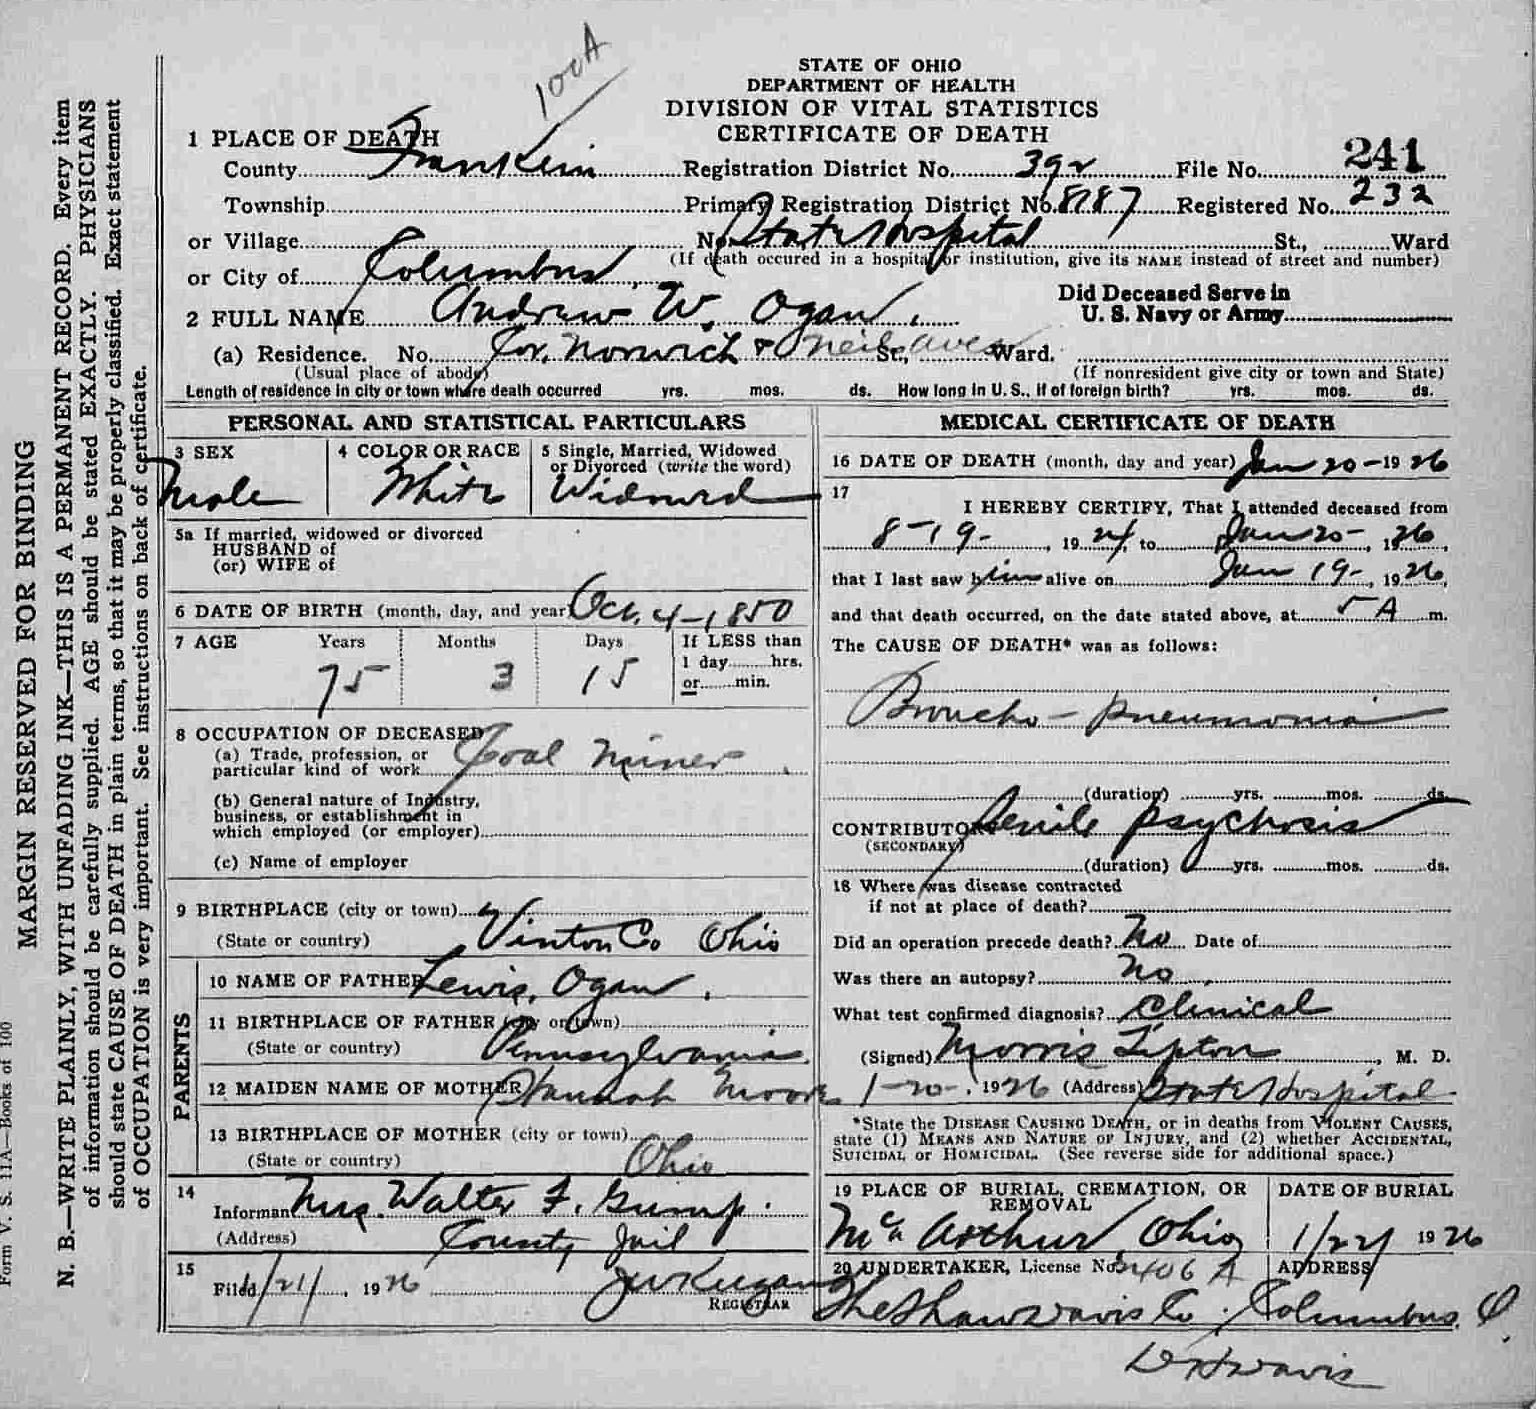 100A
STATE OF OHIO
DEPARTMENT OF HEALTH
DIVISION OF VITAL STATISTICS
CERTIFICATE OF DEATH
1 PLACE OF DEATH
County Franklin Registration District No. 392 File No. 241
Township Primary Registration District No. 8187 Registered No. 232
or Village No. State Hospital St., Ward
(If death occured in a hospital or institution, give its NAME instead of street and number)
or City of Columbus
2 FULL NAME Andrew W. Ogan.
Did Deceased Serve in
U. S. Navy or Army
(a) Residence. No. Cor. Norwich & Neil aves St., Ward.
(Usual place of abode) (If nonresident give city or town and State)
Length of residence in city or town where death occurred yrs. mos. ds. How long in U. S., if of foreign birth? yrs. mos. ds.
PERSONAL AND STATISTICAL PARTICULARS
3 SEX Male
4 COLOR OR RACE White
5 Single, Married, Widowed
or Divorced (write the word)
Widowed
5a If married, widowed or divorced
HUSBAND of
(or) WIFE of
6 DATE OF BIRTH (month, day, and year) Oct. 4-1850
7 AGE Years Months Days If LESS than
1 day hrs.
or min.
75 3 15
8 OCCUPATION OF DECEASED
(a) Trade, profession, or
particular kind of work Coal Miner
(b) General nature of Industry,
business, or establishment in
which employed (or employer)
(c) Name of employer
9 BIRTHPLACE (city or town)
(State or country) Vinton Co Ohio
PARENTS
10 NAME OF FATHER Lewis Ogan.
11 BIRTHPLACE OF FATHER (city or town)
(State or country) Pennsylvania
12 MAIDEN NAME OF MOTHER Hannah Moore
13 BIRTHPLACE OF MOTHER (city or town)
(State or country) Ohio
14
Informant Mrs. Walter F. Gump.
(Address) County Jail
15
Filed 1/21/, 1926
REGISTRAR
MEDICAL CERTIFICATE OF DEATH
16 DATE OF DEATH (month, day and year) Jan 20-1926
17
I HEREBY CERTIFY, That I attended deceased from
8-19-, 1924, to Jan 20-, 1926,
that I last saw him alive on Jan 19-, 1926,
and that death occurred, on the date stated above, at 5 A m.
The CAUSE OF DEATH* was as follows:
Broncho-pneumonia
(duration) yrs. mos. ds.
CONTRIBUTORY Senile psychosis
(SECONDARY)
(duration) yrs. mos. ds.
18 Where was disease contracted
if not at place of death?
Did an operation precede death? No Date of
Was there an autopsy? No
What test confirmed diagnosis? Clinical
(Signed) Morris Lipton, M. D.
1-20-, 1926 (Address) State Hospital
*State the DISEASE CAUSING DEATH, or in deaths from VIOLENT CAUSES,
state (1) MEANS AND NATURE OF INJURY, and (2) whether ACCIDENTAL,
SUICIDAL or HOMICIDAL. (See reverse side for additional space.)
19 PLACE OF BURIAL, CREMATION, OR
REMOVAL
McArthur, Ohio
DATE OF BURIAL
1/22/ 1926
20 UNDERTAKER, License No. 2406 A ADDRESS
The Shaw Davis Co. Columbus, O.
Davis
MARGIN RESERVED FOR BINDING
N. B.—WRITE PLAINLY, WITH UNFADING INK—THIS IS A PERMANENT RECORD. Every item
of information should be carefully supplied. AGE should be stated EXACTLY. PHYSICIANS
should state CAUSE OF DEATH in plain terms, so that it may be properly classified. Exact statement
of OCCUPATION is very important. See instructions on back of certificate.
Form V. S. 11A—Books of 100